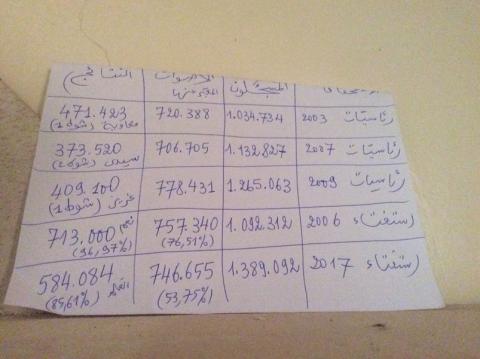 المسجلون النتائج
رئاسيات 2003 1.034.734 720.388 471.423
معاوية (شوط1)
رئاسيات 2007 1.132.827 706.705 373.520
سيدي (شوط2)
رئاسيات 2009 1.265.063 778.431 409.100
عزيز (شوط1)
استفتاء 2006 1.092.312 757.340 713.000 نعم
(76,51%) (96,97%)
استفتاء 2017 1.389.092 746.655 584.084
(53,75%) (85,61%)